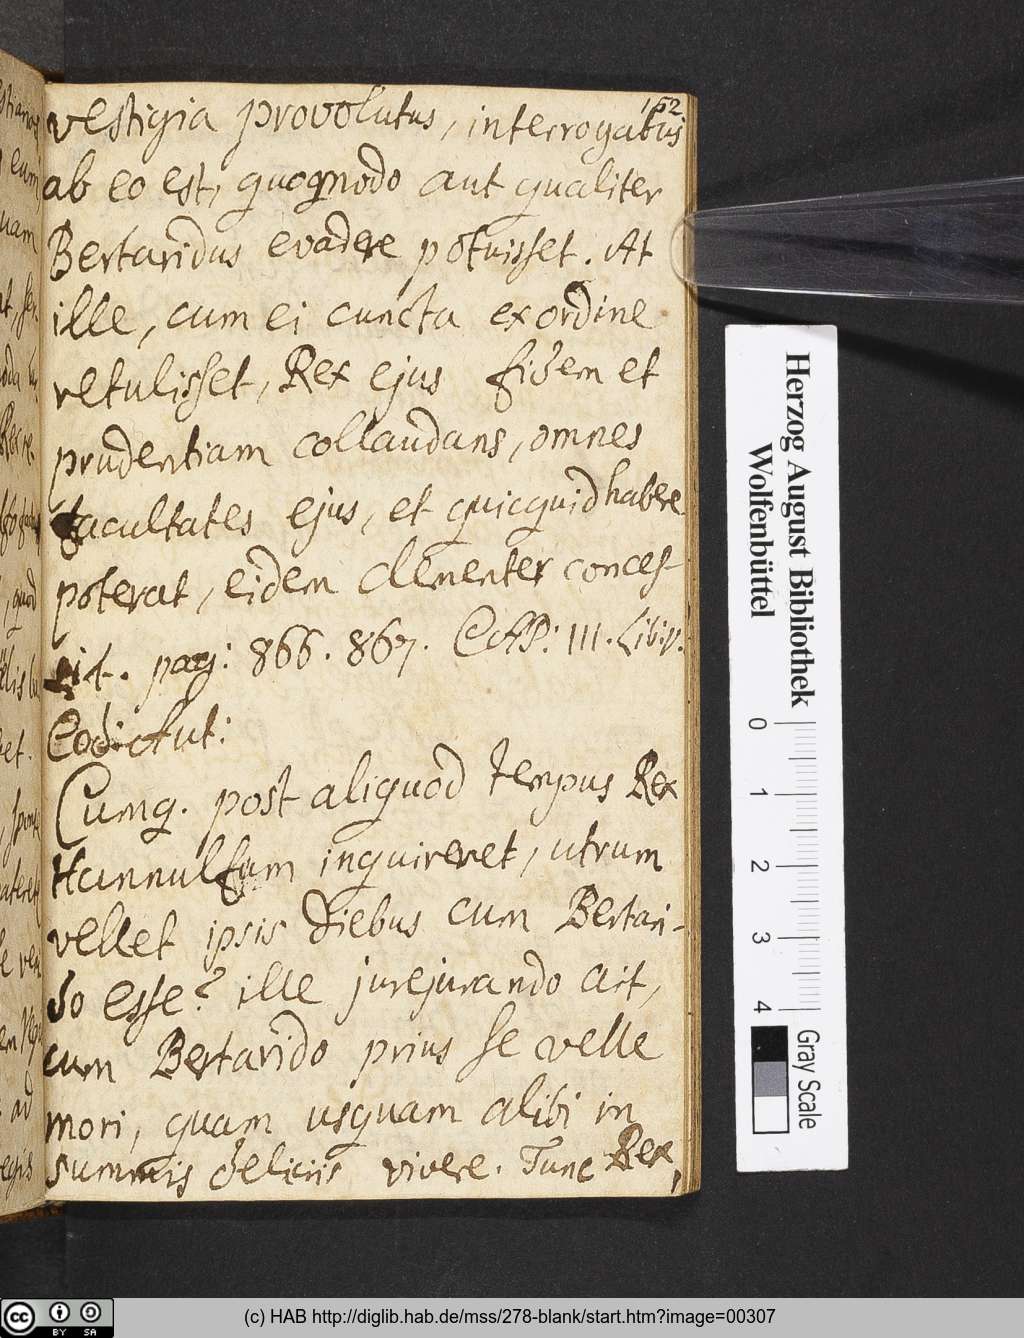 152
vestigia provolutus, interrogatus
ab eo est, quoqmodo aut qualiter
Bertaridus evadere potuisset. At
ille, cum ei cuncta ex ordine
retulisset, Rex ejus fidem et
prudentiam collaudans, omnes
facultates ejus, et quicquid habere
poterat, eidem clementer conces-
sit. pag: 866. 867. CAP: III. Lib: V.
Eod: Aut:
Cumq. post aliquod tempus Rex
Hunnulfum inquireret, utrum
vellet ipsis diebus cum Bertari-
do esse? ille jurejurando ait,
cum Bertarido prius se velle
mori, quam usquam alibi in
summis deliciis vivere. Tunc Rex,
Herzog August Bibliothek
Wolfenbüttel
0 1 2 3 4
Gray Scale
cc BY SA
(c) HAB http://diglib.hab.de/mss/278-blank/start.htm?image=00307